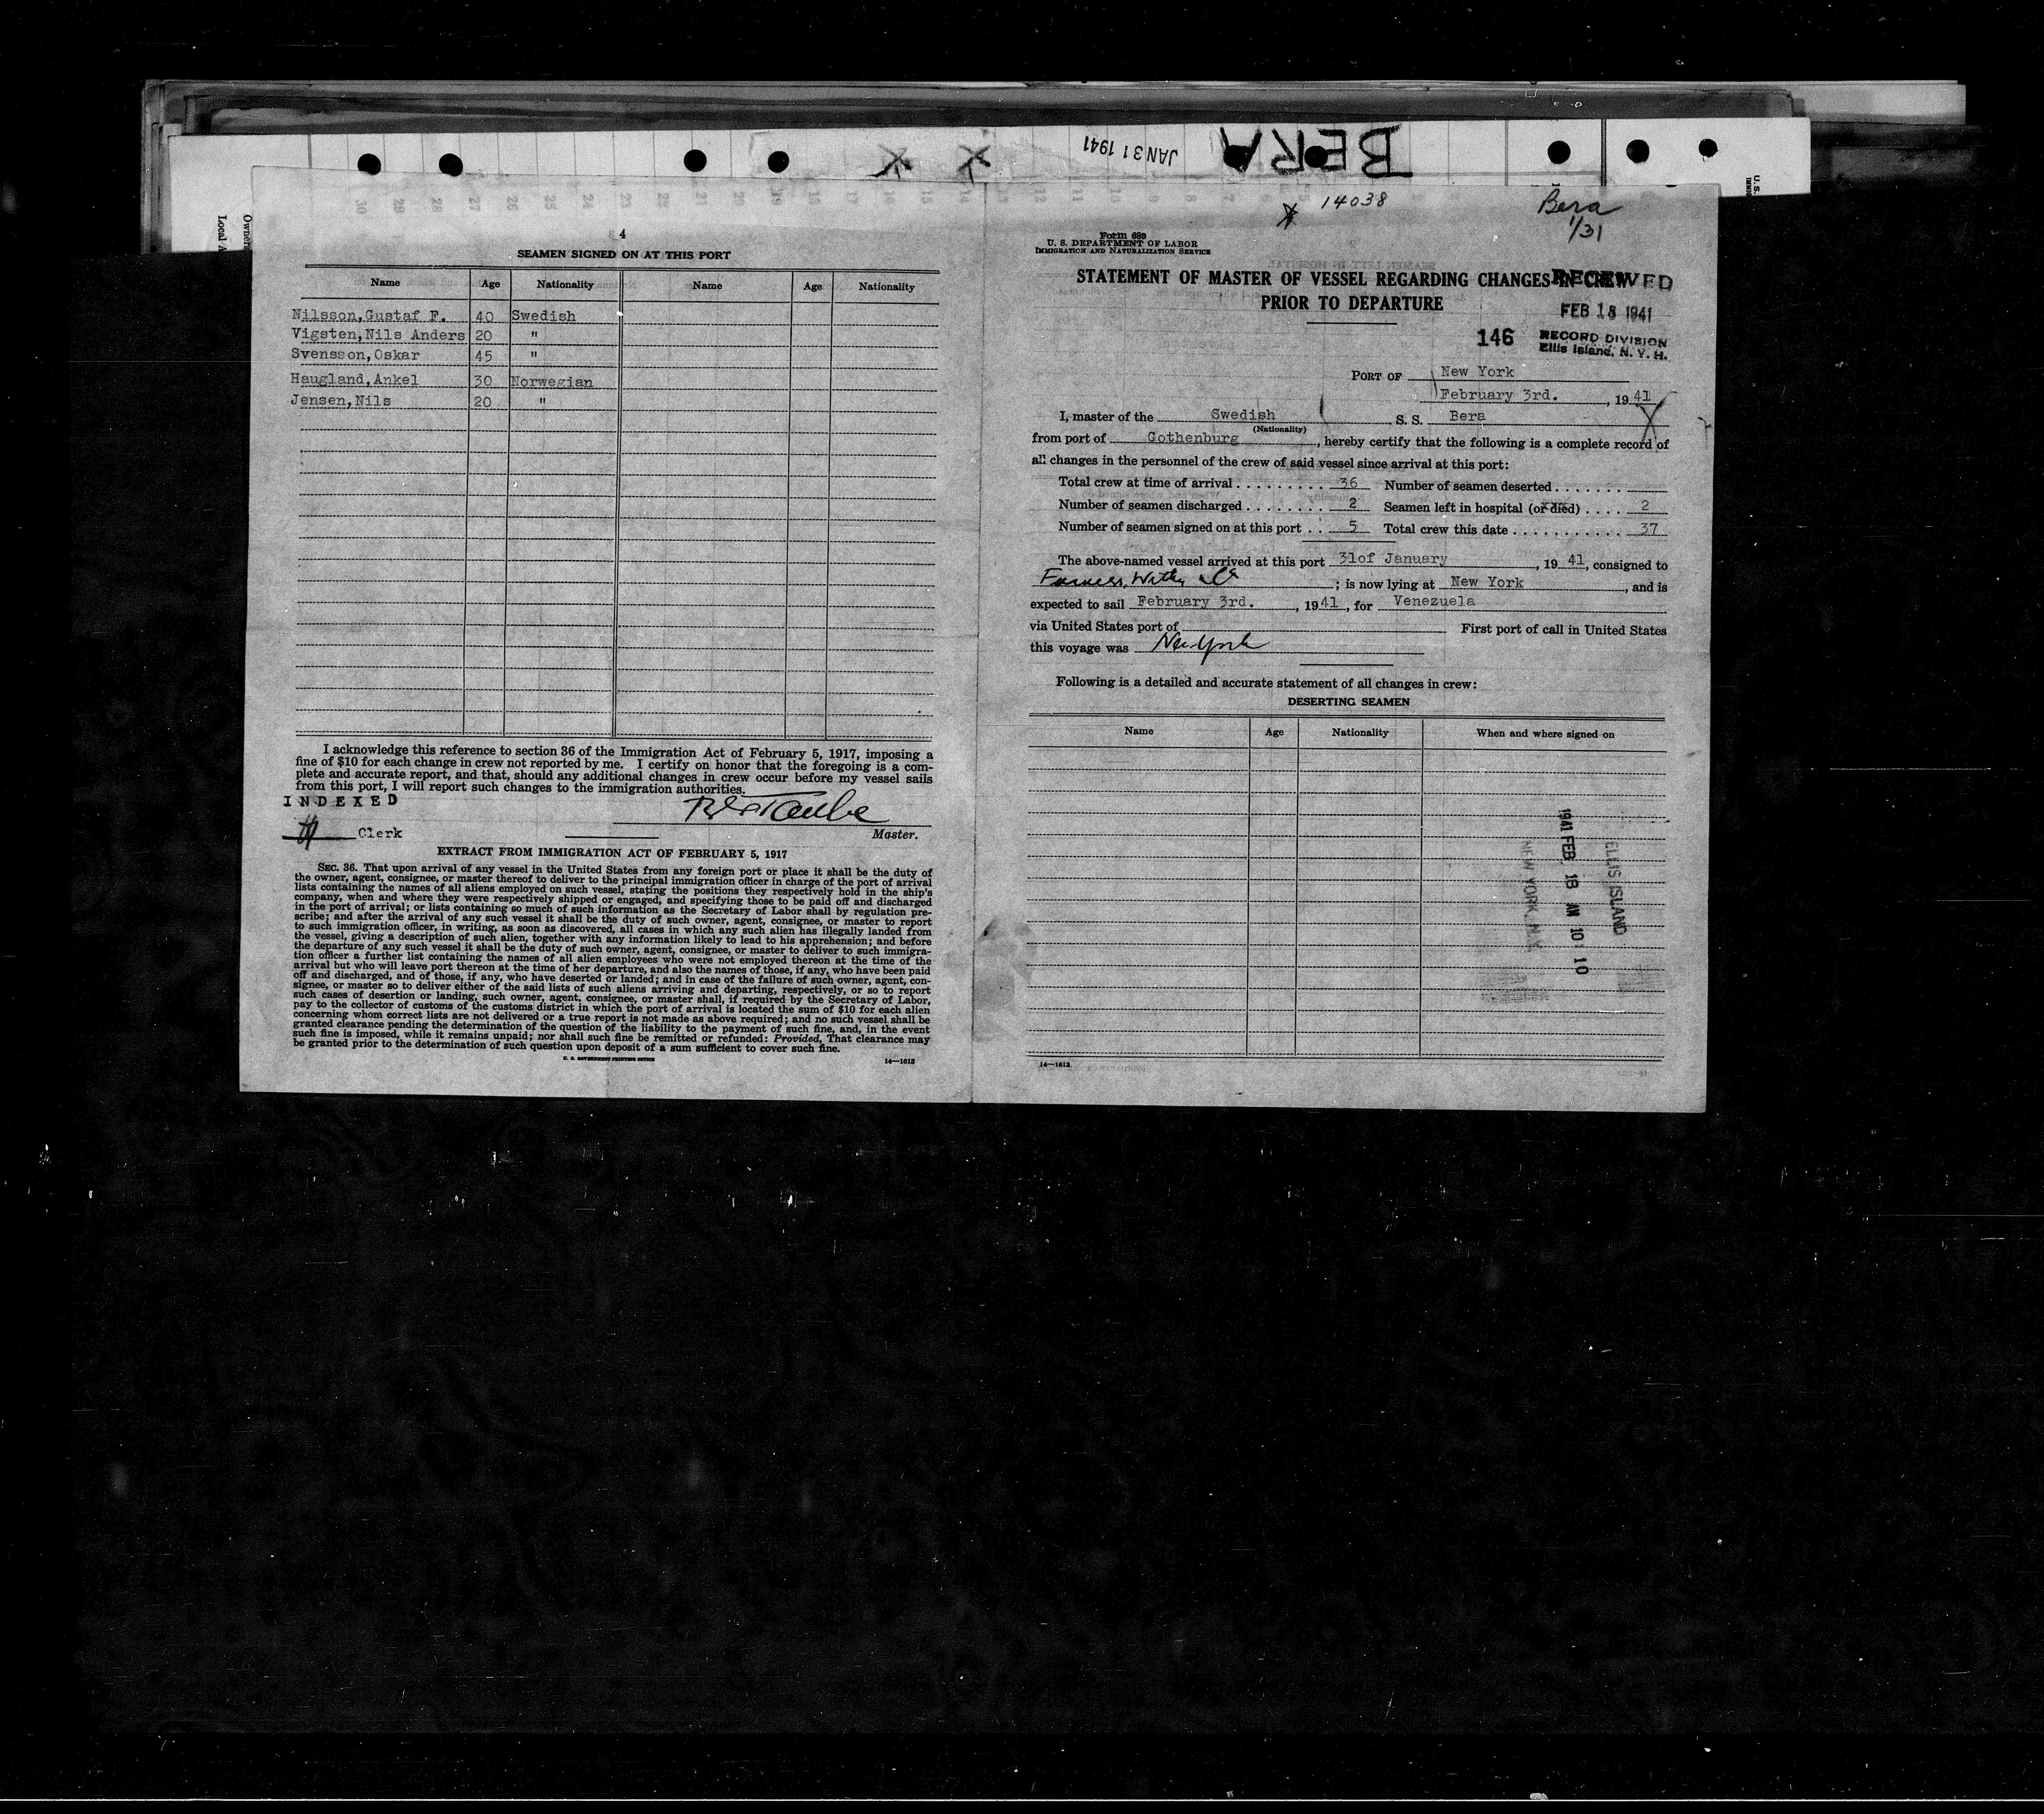 BERA
JAN 31 1941
U. S.
Owners
Local A
30 29 28 27 26 25 24 23 22 21 20 19 18 17 16 15 14 13 12 11 10 9 8 7
4
SEAMEN SIGNED ON AT THIS PORT
Name Age Nationality Name Age Nationality
Nilsson,Gustaf F. 40 Swedish
Vigsten,Nils Anders 20 "
Svensson,Oskar 45 "
Haugland,Ankel 30 Norwegian
Jensen,Nils 20 "
I acknowledge this reference to section 36 of the Immigration Act of February 5, 1917, imposing a
fine of $10 for each change in crew not reported by me. I certify on honor that the foregoing is a com-
plete and accurate report, and that, should any additional changes in crew occur before my vessel sails
from this port, I will report such changes to the immigration authorities.
INDEXED
Clerk
Master.
EXTRACT FROM IMMIGRATION ACT OF FEBRUARY 5, 1917
SEC. 36. That upon arrival of any vessel in the United States from any foreign port or place it shall be the duty of
the owner, agent, consignee, or master thereof to deliver to the principal immigration officer in charge of the port of arrival
lists containing the names of all aliens employed on such vessel, stating the positions they respectively hold in the ship's
company, when and where they were respectively shipped or engaged, and specifying those to be paid off and discharged
in the port of arrival; or lists containing so much of such information as the Secretary of Labor shall by regulation pre-
scribe; and after the arrival of any such vessel it shall be the duty of such owner, agent, consignee, or master to report
to such immigration officer, in writing, as soon as discovered, all cases in which any such alien has illegally landed from
the vessel, giving a description of such alien, together with any information likely to lead to his apprehension; and before
the departure of any such vessel it shall be the duty of such owner, agent, consignee, or master to deliver to such immigra-
tion officer a further list containing the names of all alien employees who were not employed thereon at the time of the
arrival but who will leave port thereon at the time of her departure, and also the names of those, if any, who have been paid
off and discharged, and of those, if any, who have deserted or landed; and in case of the failure of such owner, agent, con-
signee, or master so to deliver either of the said lists of such aliens arriving and departing, respectively, or so to report
such cases of desertion or landing, such owner, agent, consignee, or master shall, if required by the Secretary of Labor,
pay to the collector of customs of the customs district in which the port of arrival is located the sum of $10 for each alien
concerning whom correct lists are not delivered or a true report is not made as above required; and no such vessel shall be
granted clearance pending the determination of the question of the liability to the payment of such fine, and, in the event
such fine is imposed, while it remains unpaid; nor shall such fine be remitted or refunded: Provided, That clearance may
be granted prior to the determination of such question upon deposit of a sum sufficient to cover such fine.
U. S. GOVERNMENT PRINTING OFFICE 14—1613
14038
Bera
1/31
Form 689
U. S. DEPARTMENT OF LABOR
IMMIGRATION AND NATURALIZATION SERVICE
STATEMENT OF MASTER OF VESSEL REGARDING CHANGES IN CREW
PRIOR TO DEPARTURE
RECEIVED
FEB 18 1941
RECORD DIVISION
Ellis Island, N. Y. H.
146
PORT OF New York
February 3rd. , 1941
I, master of the Swedish S. S. Bera
(Nationality)
from port of Gothenburg , hereby certify that the following is a complete record of
all changes in the personnel of the crew of said vessel since arrival at this port:
Total crew at time of arrival . . . . . . . . . . 36 Number of seamen deserted . . . . . . .
Number of seamen discharged . . . . . . . . 2 Seamen left in hospital (or died) . . . . 2
Number of seamen signed on at this port . . 5 Total crew this date . . . . . . . . . . . 37
The above-named vessel arrived at this port 31of January , 1941, consigned to
Furness, Withy & Co ; is now lying at New York , and is
expected to sail February 3rd. , 1941 , for Venezuela
via United States port of First port of call in United States
this voyage was New York
Following is a detailed and accurate statement of all changes in crew:
DESERTING SEAMEN
Name Age Nationality When and where signed on
1941 FEB 18 AM 10 10
ELLIS ISLAND
NEW YORK, N.Y.
14—1613